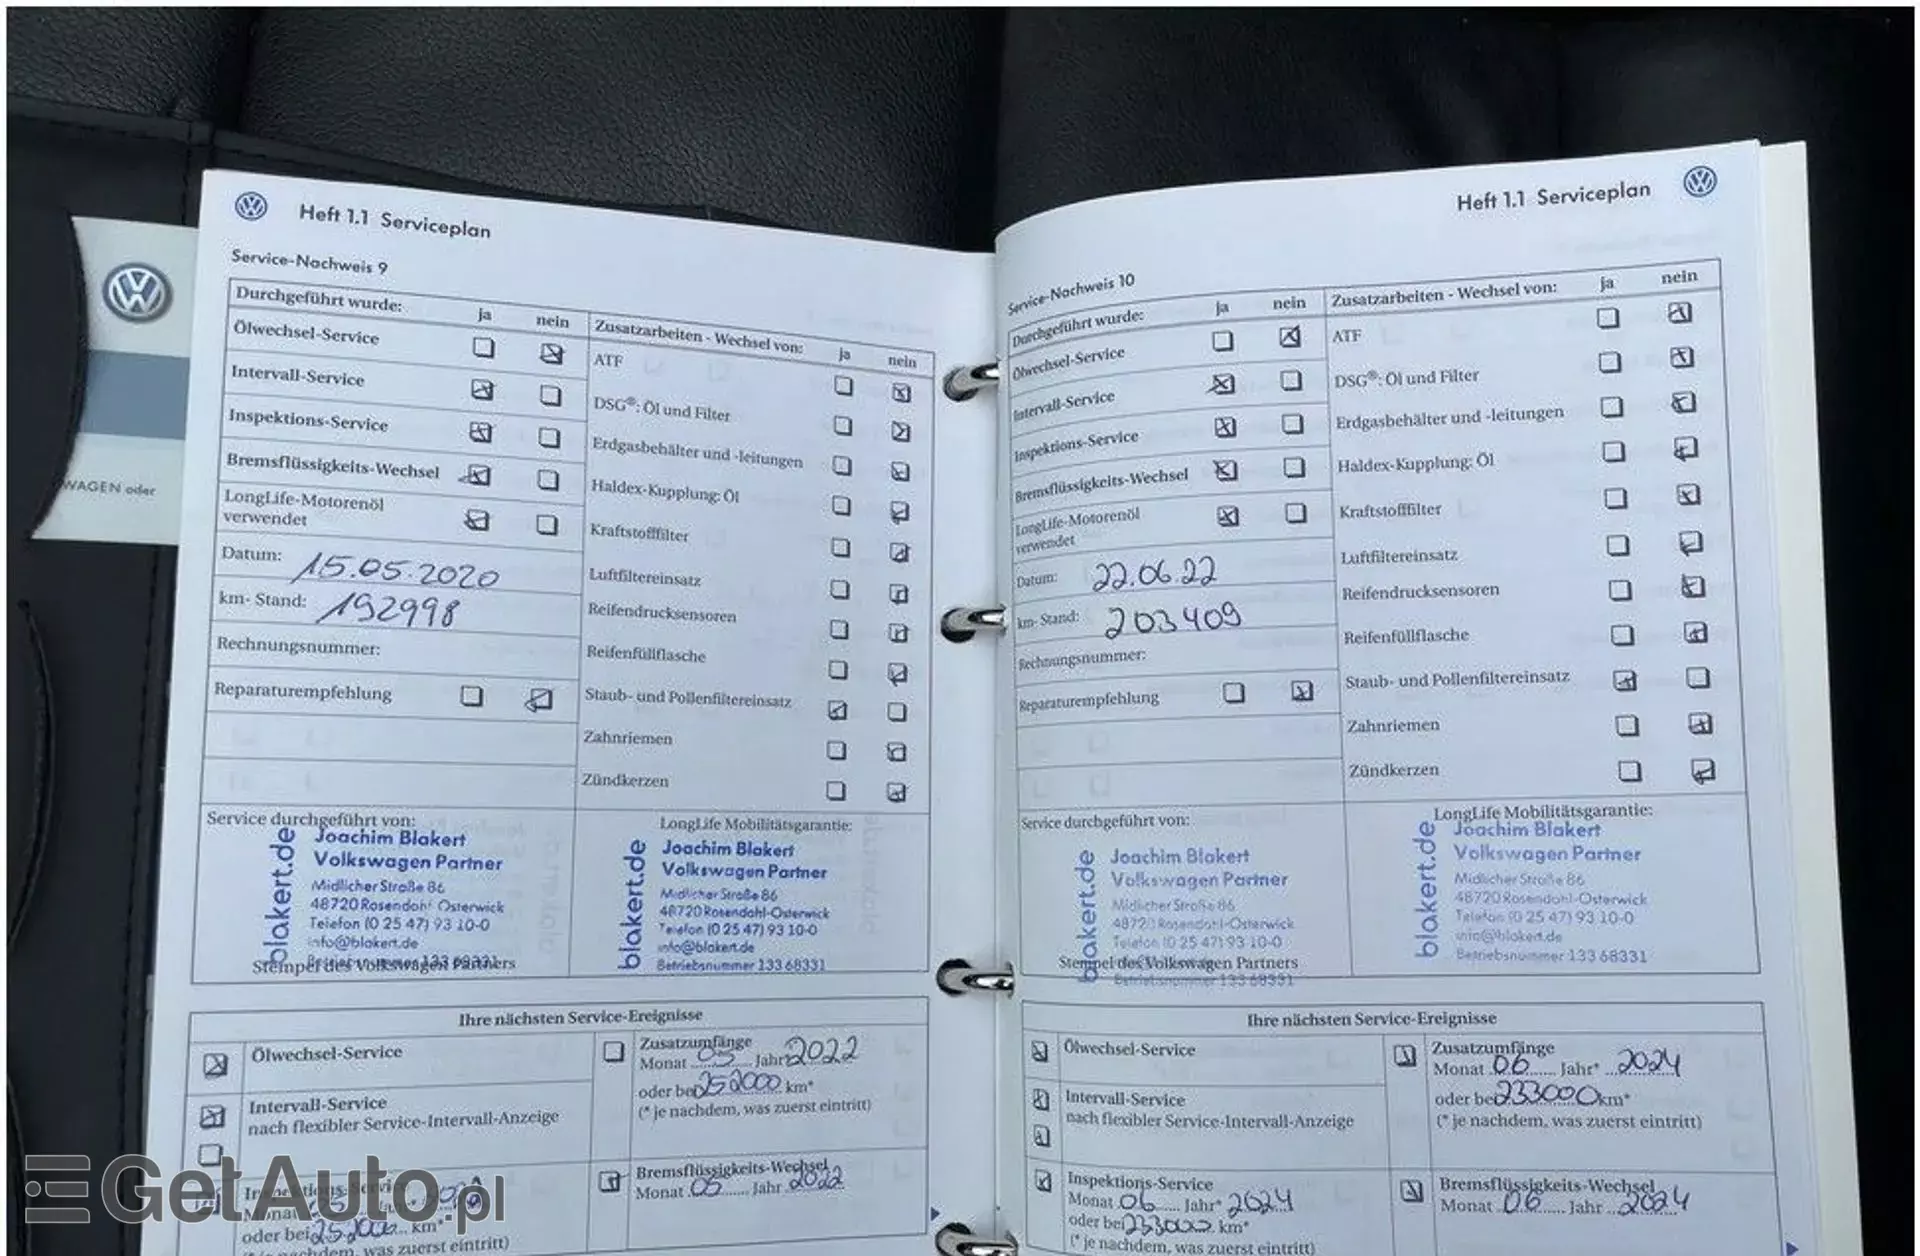 Heft 1.1 Serviceplan
Service-Nachweis 9
Durchgeführt wurde:
ja
nein
Ölwechsel-Service
Intervall-Service
Inspektions-Service
Bremsflüssigkeits-Wechsel
LongLife-Motorenöl
verwendet
Datum: 15.05.2020
km- Stand: 192998
Rechnungsnummer:
Reparaturempfehlung
Zusatzarbeiten - Wechsel von:
ja
nein
ATF
DSG®: Öl und Filter
Erdgasbehälter und -leitungen
Haldex-Kupplung: Öl
Kraftstofffilter
Luftfiltereinsatz
Reifendrucksensoren
Reifenfüllflasche
Staub- und Pollenfiltereinsatz
Zahnriemen
Zündkerzen
Service durchgeführt von:
blakert.de
Joachim Blakert
Volkswagen Partner
Midlicher Straße 86
48720 Rosendahl-Osterwick
Telefon (0 25 47) 93 10-0
info@blakert.de
Betriebsnummer 133 68331
Stempel des Volkswagen Partners
LongLife Mobilitätsgarantie:
blakert.de
Joachim Blakert
Volkswagen Partner
Midlicher Straße 86
48720 Rosendahl-Osterwick
Telefon (0 25 47) 93 10-0
info@blakert.de
Betriebsnummer 133 68331
Ihre nächsten Service-Ereignisse
Ölwechsel-Service
Intervall-Service
nach flexibler Service-Intervall-Anzeige
Inspektions-Service
Monat
oder bei 252000 km*
(* je nachdem, was zuerst eintritt)
Zusatzumfänge
Monat 05 Jahr* 2022
oder bei 252000 km*
(* je nachdem, was zuerst eintritt)
Bremsflüssigkeits-Wechsel
Monat 05 Jahr 2022
WAGEN oder
Heft 1.1 Serviceplan
Service-Nachweis 10
Durchgeführt wurde:
ja
nein
Ölwechsel-Service
Intervall-Service
Inspektions-Service
Bremsflüssigkeits-Wechsel
LongLife-Motorenöl
verwendet
Datum: 22.06.22
km- Stand: 203409
Rechnungsnummer:
Reparaturempfehlung
Zusatzarbeiten - Wechsel von:
ja
nein
ATF
DSG®: Öl und Filter
Erdgasbehälter und -leitungen
Haldex-Kupplung: Öl
Kraftstofffilter
Luftfiltereinsatz
Reifendrucksensoren
Reifenfüllflasche
Staub- und Pollenfiltereinsatz
Zahnriemen
Zündkerzen
Service durchgeführt von:
blakert.de
Joachim Blakert
Volkswagen Partner
Midlicher Straße 86
48720 Rosendahl-Osterwick
Telefon (0 25 47) 93 10-0
info@blakert.de
Stempel des Volkswagen Partners
Betriebsnummer 133 68331
LongLife Mobilitätsgarantie:
blakert.de
Joachim Blakert
Volkswagen Partner
Midlicher Straße 86
48720 Rosendahl-Osterwick
Telefon (0 25 47) 93 10-0
info@blakert.de
Betriebsnummer 133 68331
Ihre nächsten Service-Ereignisse
Ölwechsel-Service
Intervall-Service
nach flexibler Service-Intervall-Anzeige
Inspektions-Service
Monat 06 Jahr* 2024
oder bei 233000 km*
(* je nachdem, was zuerst eintritt)
Zusatzumfänge
Monat 06 Jahr* 2024
oder bei 233000 km*
(* je nachdem, was zuerst eintritt)
Bremsflüssigkeits-Wechsel
Monat 06 Jahr 2024
GetAuto.pl